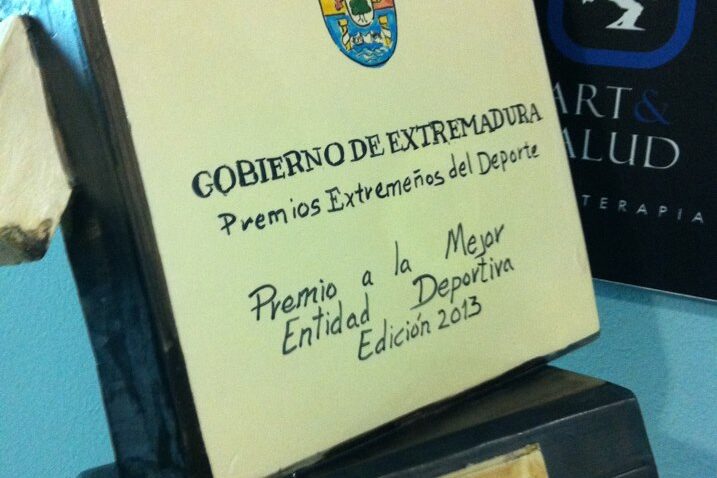 GOBIERNO DE EXTREMADURA
Premios Extremeños del Deporte
Premio a la Mejor
Entidad Deportiva
Edición 2013
ART&
ALUD
TERAPIA